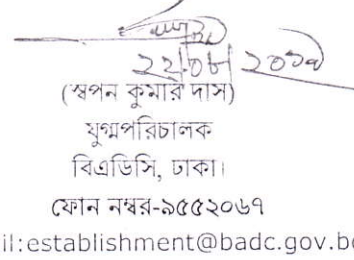 (স্বপন কুমার দাস)
যুগ্মপরিচালক
বিএডিসি, ঢাকা।
ফোন নম্বর-৯৫৫২০৬৭
il:establishment@badc.gov.bd